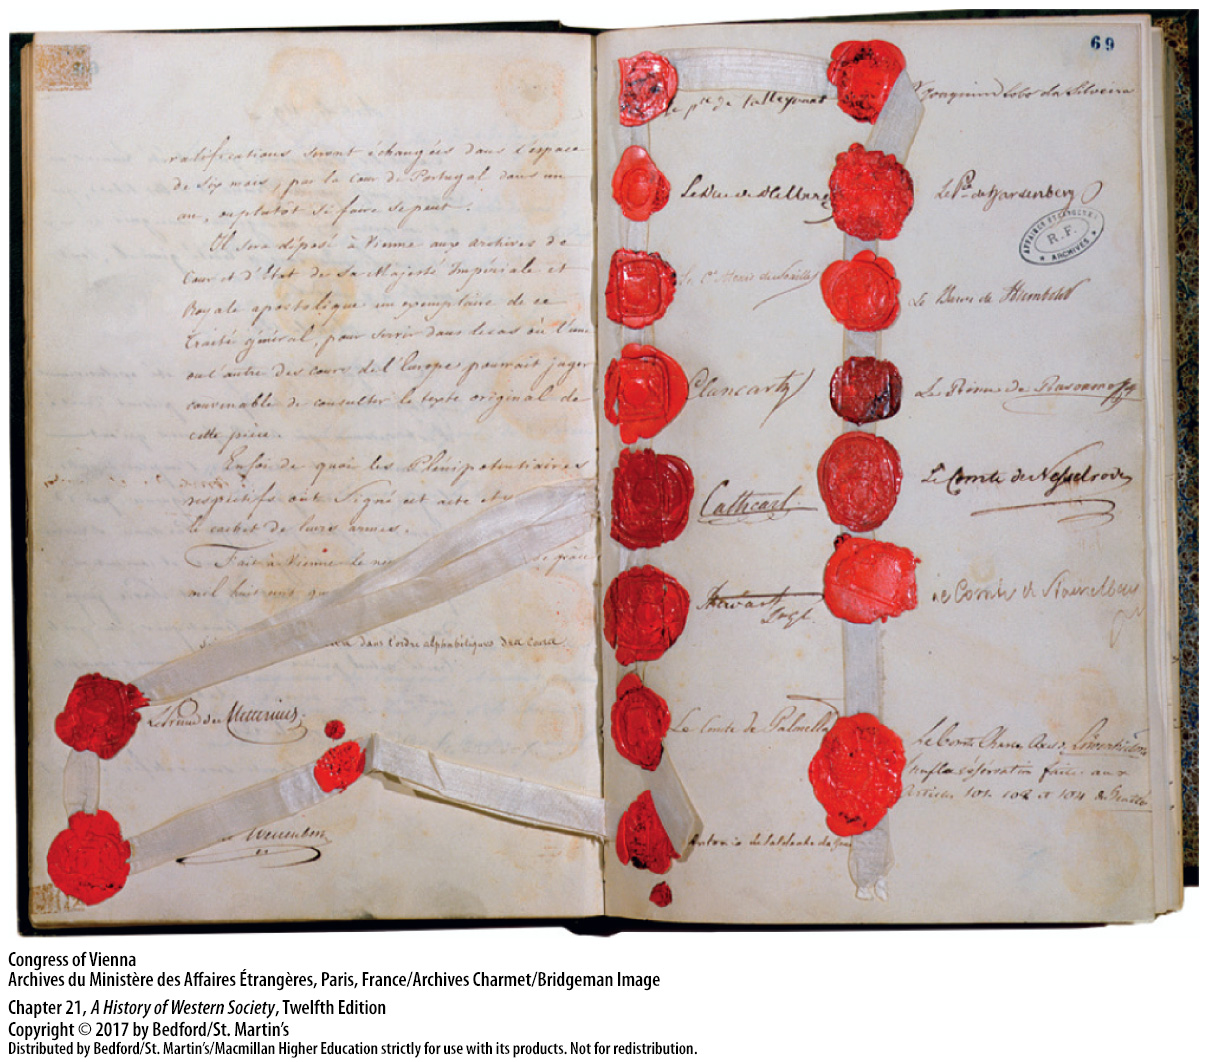 ratifications seront échangées dans l'espace
de six mois, par la cour de Portugal dans un
an, ou plutôt si faire se peut.
Il sera déposé à Vienne aux archives de
Cour et d'Etat de Sa Majesté Impériale et
Royale apostolique un exemplaire de ce
traité général, pour servir dans le cas où l'une
ou l'autre des cours de l'Europe pourrait juger
convenable de consulter le texte original de
cette pièce.
En foi de quoi les Plénipotentiaires
respectifs ont signé cet acte et y
le cachet de leurs armes.
Fait à Vienne le
mil huit cent
dans l'ordre alphabétique des cours
Le Prince de Metternich
69
le pce de Talleyrand
Joaquim Lobo da Silveira
Le Duc de Dalberg
Le Pce de Hardenberg
AFFAIRES ETRANGERES
R.F.
ARCHIVES
Le Baron de Humboldt
Clancarty
Le Prince de Rasoumoffsky
Cathcart
Le Comte de Nesselrode
Stewart
Le Comte de
Le Comte de Palmella
Le Comte Charles Axel de Löwenhielm
faite aux
articles 101. 102 et 104 du Traité
Antonio de Saldanha da Gama
Congress of Vienna
Archives du Ministère des Affaires Étrangères, Paris, France/Archives Charmet/Bridgeman Image
Chapter 21, A History of Western Society, Twelfth Edition
Copyright © 2017 by Bedford/St. Martin's
Distributed by Bedford/St. Martin's/Macmillan Higher Education strictly for use with its products. Not for redistribution.